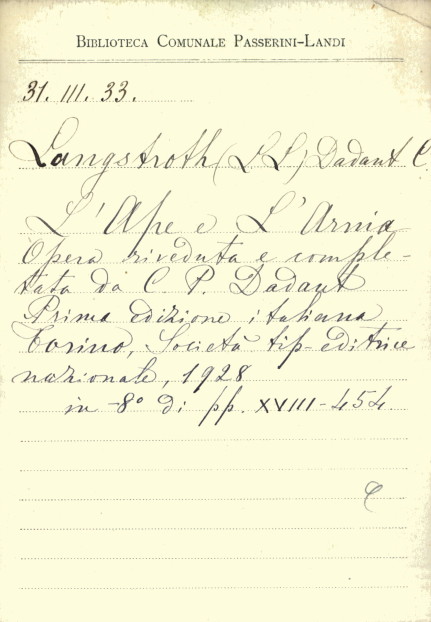 BIBLIOTECA COMUNALE PASSERINI-LANDI
31. III. 33.
Langstroth (L. L.) Dadant C.
L'Ape e L'Arnia
Opera riveduta e comple-
tata da C. P. Dadant
Prima edizione italiana
Torino, Società tip-editrice
nazionale, 1928
in -8° di pp. XVIII-454